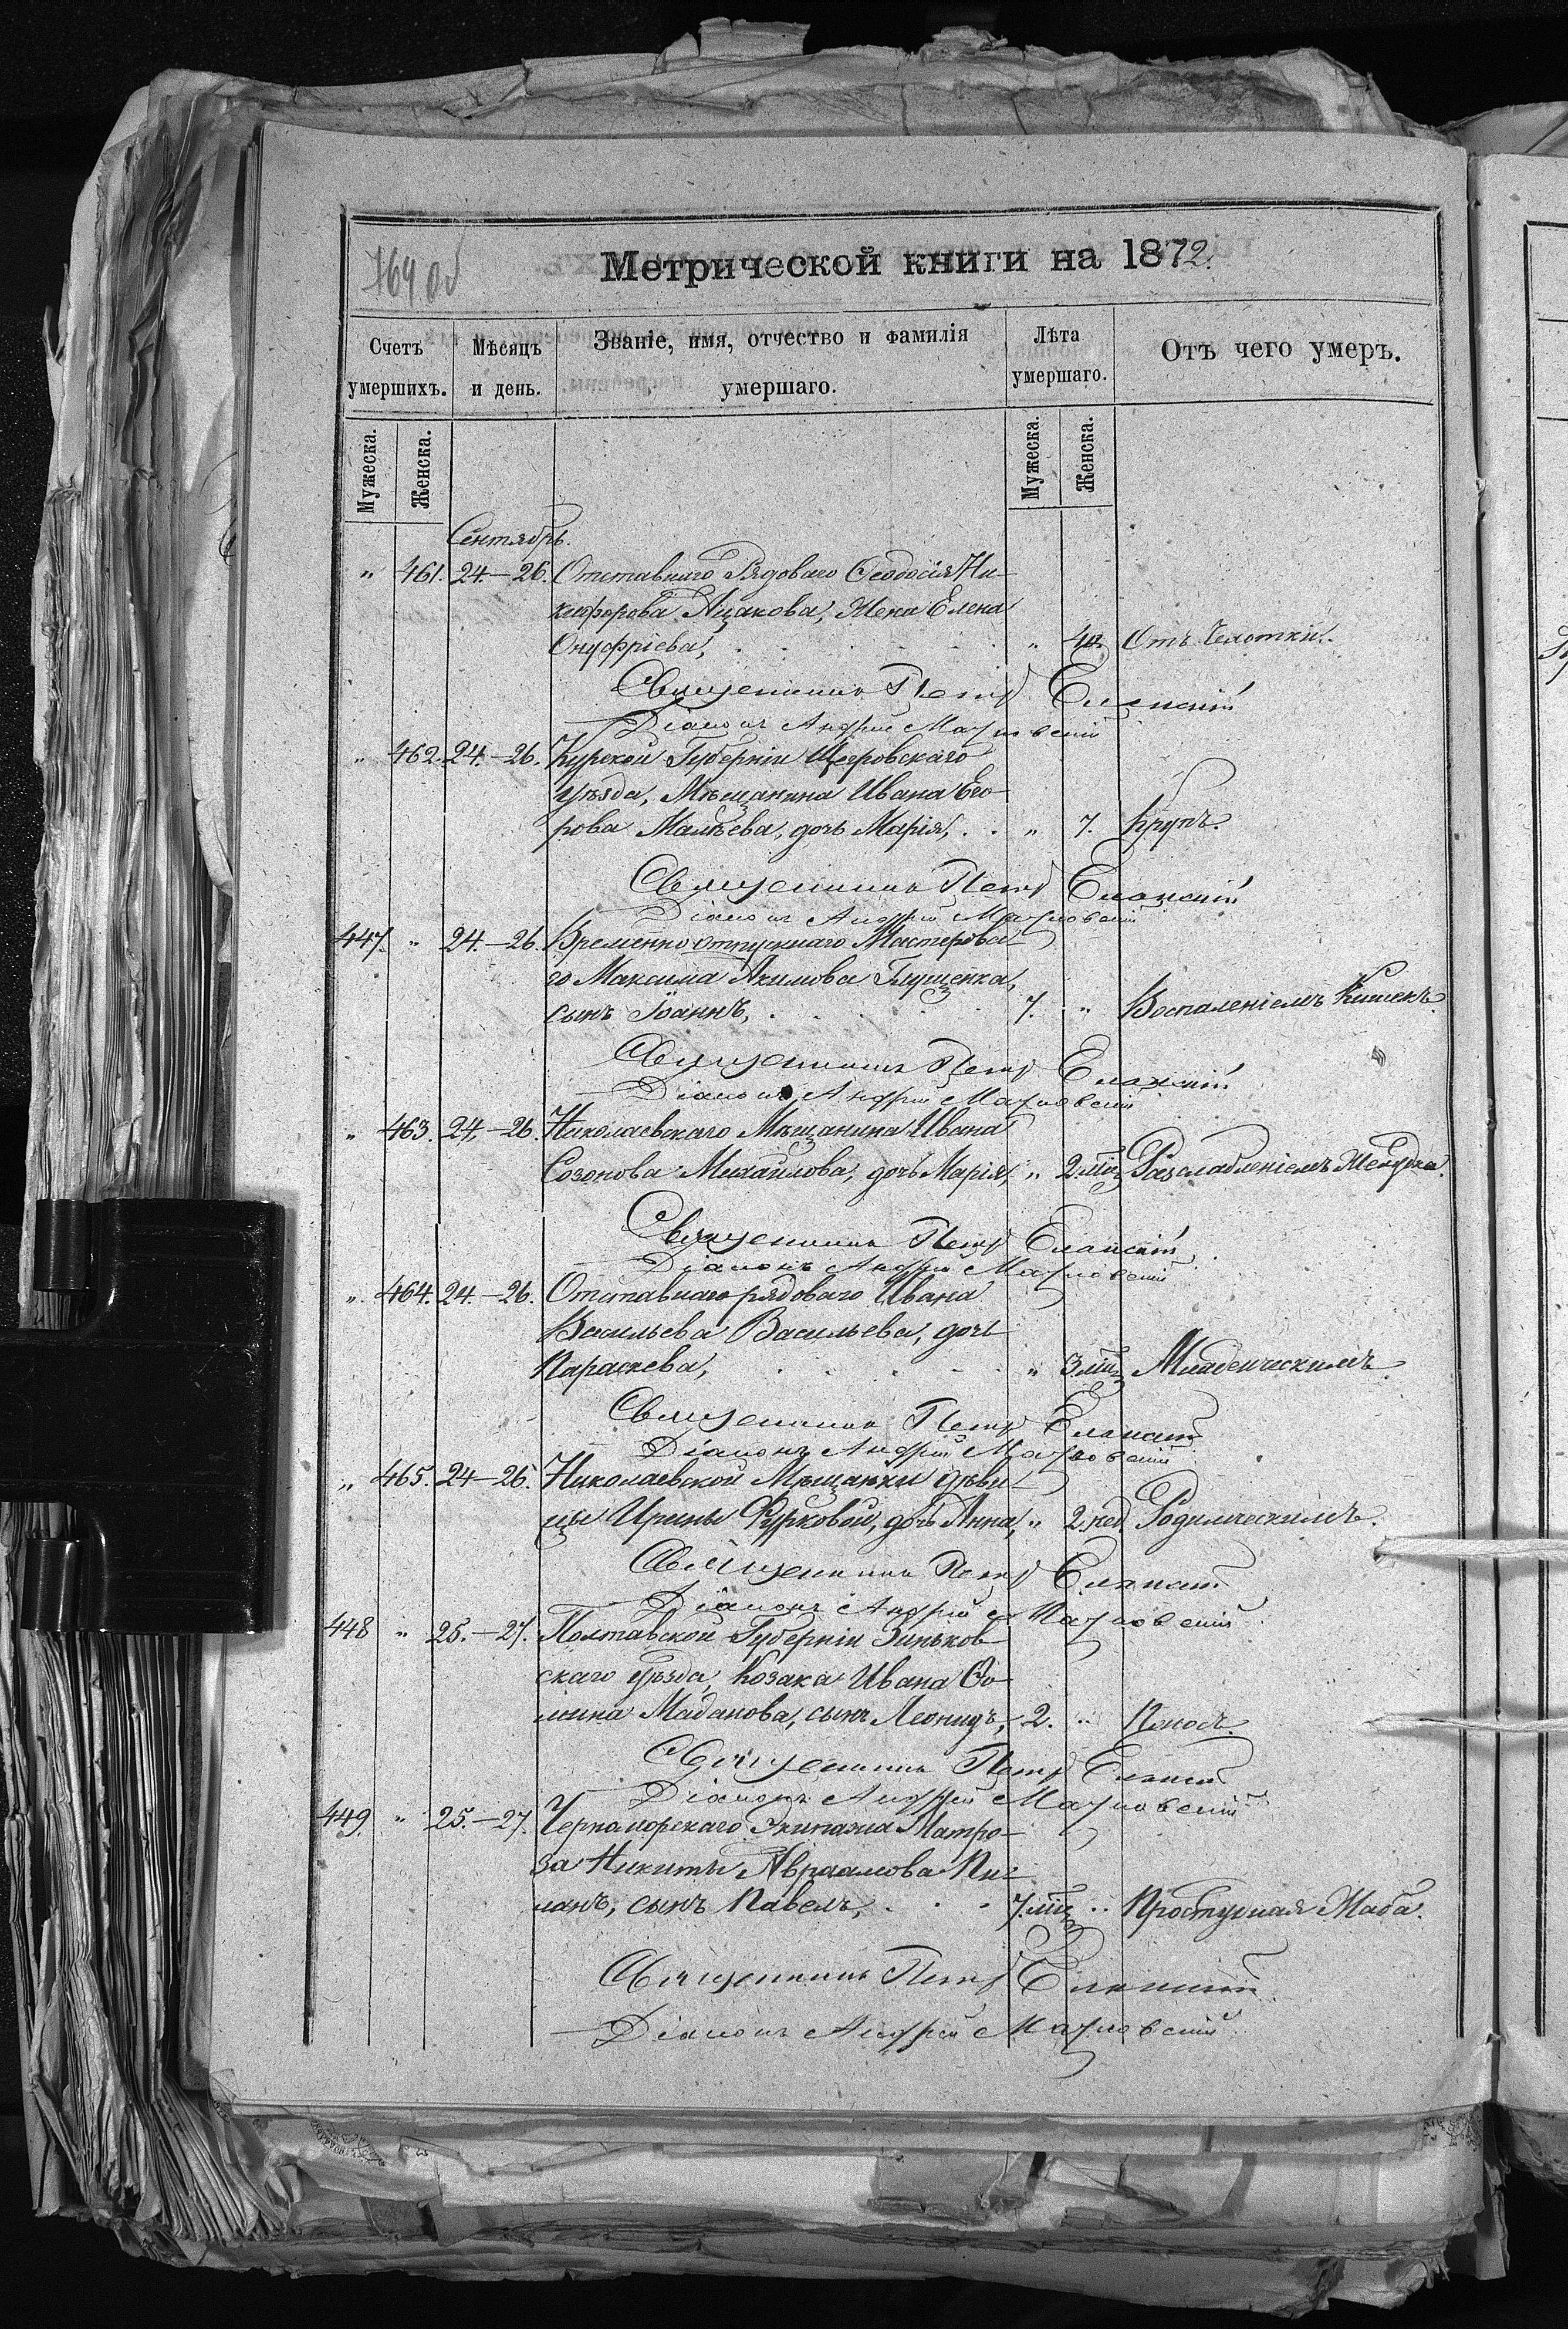 Метрической книги на 1872.
764 об
Счетъ умершихъ.
Мѣсяцъ и день.
Званіе, имя, отчество и фамилія умершаго.
Лѣта умершаго.
Отъ чего умеръ.
Мужеска.
Женска.
Мужеска.
Женска.
Сентябрь.
" 461. 24.–26. Отставнаго Рядоваго Ѳеодосія Ни-
кифорова, Жена Елена
Онуфріева, " Отъ Чахотки.
Священникъ Петръ Еланскій
Діаконъ Андрей
" 462. 24.–26. Курской Губерніи Щигровскаго
уѣзда, Мѣщанина Ивана Его-
рова Мальева, дочь Марія, " 7. Крупъ.
Священникъ Петръ Еланскій
Діаконъ Андрей
447. " 24.–26. Временно отпускнаго Мастерова-
го Максима Акимова Глущенка,
сынъ Іоаннъ, 7. " Воспаленіемъ Кишекъ.
Священникъ Петръ Еланскій
Діаконъ Андрей
" 463. 24.–26. Николаевскаго Мѣщанина Ивана
Созонова Михайлова, дочь Марія, " 2 мц Разслабленіемъ Желудка.
Священникъ Петръ Еланскій
Діаконъ Андрей
" 464. 24.–26. Отставнаго рядоваго Ивана
Васильева Васильева, дочь
Параскева, " 3 мц Младенческимъ.
Священникъ Петръ Еланскій
Діаконъ Андрей
" 465. 24–26. Николаевской Мѣщанки дѣви-
цы Ирины Фурковой, дочь Анна, " 2 нед Родимческимъ.
Священникъ Петръ Еланскій
Діаконъ Андрей
448 " 25.–27. Полтавской Губерніи Зиньков-
скаго уѣзда, Козака Ивана Ѳо-
мина Маданова, сынъ Леонидъ, 2. " Поносъ.
Священникъ Петръ Еланскій
Діаконъ Андрей
449. " 25.–27. Черноморскаго Экипажа Матро-
за Никиты Авраамова
сынъ Павелъ, 7 мц " Простудная Жаба.
Священникъ Петръ Еланскій
Діаконъ Андрей